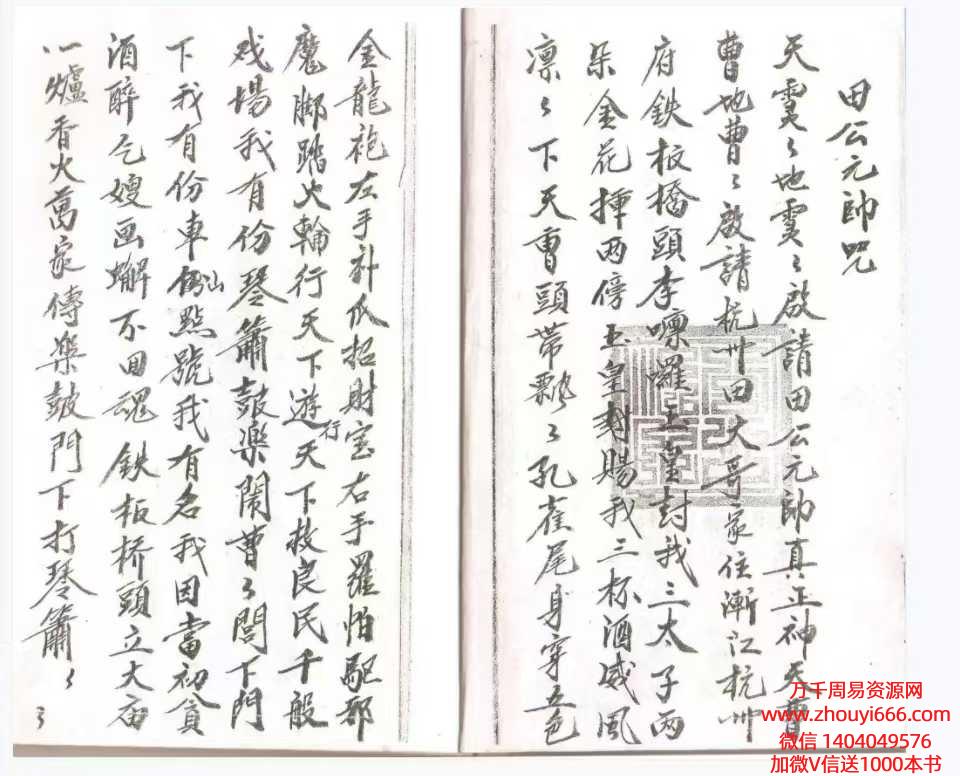 田公元帥咒
天灵〻地灵〻啟請田公元帥真正神天曹
曹地曹〻啟請杭州田大哥家住浙江杭州
府鉄板橋頭李嘪囉玉皇封我三太子两
朵金花揷两傍玉皇封賜我三杯酒威風
凛〻下天曹頭帶飄〻孔雀尾身穿五色
金龍袍左手爪招財宝右手羅怕駆邪
魔脚踏火輪行天下遊行天下救良民千般
戏場我有份琴簫鼓樂鬧曹〻閭下門
下我有份車山點號我有名我因當初貪
酒醉乞嫂画蠏不囬魂鉄板桥頭立大庙
一爐香火萬家傳樂鼓門下打琴簫〻
万千周易资源网
www.zhouyi666.com
微信 1404049576
加微V信送1000本书